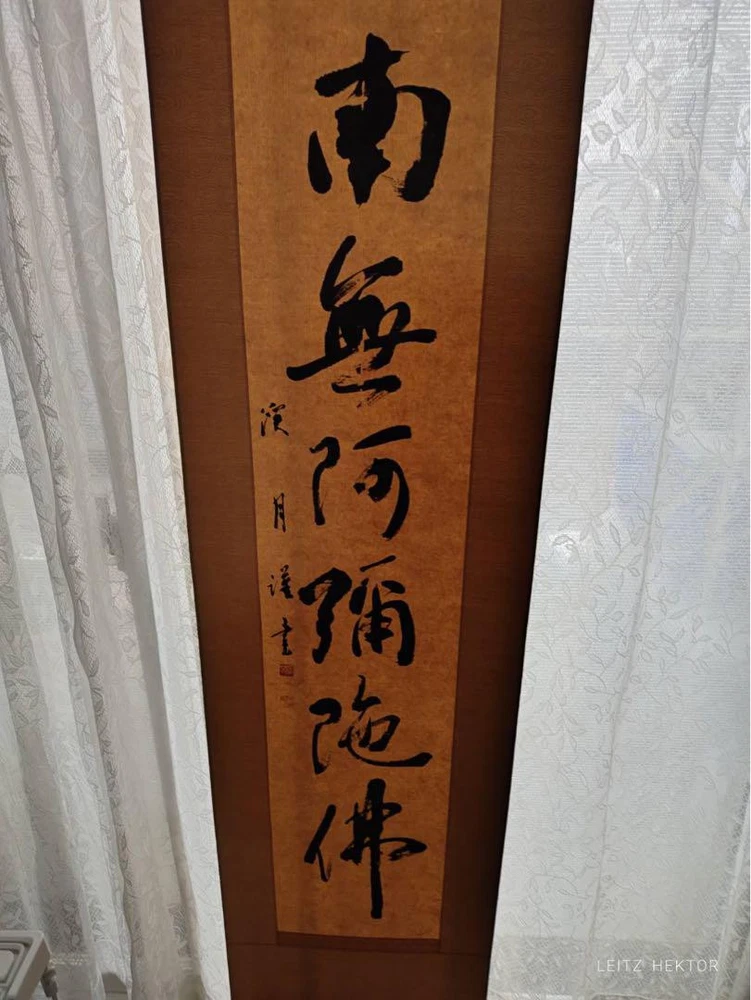 南無阿彌陀佛
月謹書
LEITZ HEKTOR